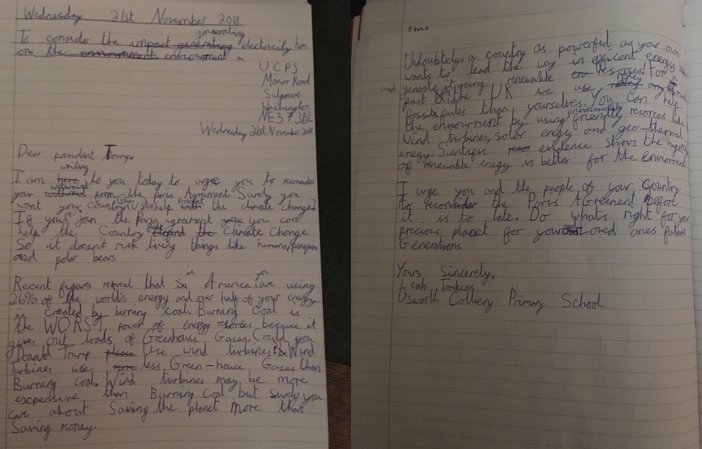 Wednesday 21st November 2018
generating
To consider the impact generating electricity has
on the environment enviroment
UCPS
Manor Road
Sulgrave
Washington
NE37 3BL
Wednesday 21st November 2018
Dear president Trump
writing
I am to you today to urge you to reconsider
your withdrawl from the paris Agreement. Surely you
want your country to help with the climate change?
If your join the Paris agreement you can
help the Country the Climate Change
So it doesn't risk living things like humans, penguins
and polar bears.
Recent figures reveal that in America are using
26% of the world's energy and over half of your energy
is created by burning Coal. Burning Coal is
the WORST power of energy resorses because it
gives out loads of Greenhouse Gases. Could you
Donald Trump please Use wind turbines. Wind
Turbines use less Green-house Gases than
Burning Coal. Wind turbines may be more
expensive than Burning Coal but Surely you
care about Saving the planet more than
Saving money.
Undoubtely, a country as powerful as your own
wants to lead the way in efficent energy
and generate using renewable resorses. For
fact the UK we use
fossil fules than yourselves. You can help
the enviourment by using friendly resorces like
Wind turbines, solar energy and geo-thermal
energy. Scientific evidence shows the
of renewable energy is better for the Enviroment
I urge you and the people of your Country
to reconsider the Paris Agreement before
it is to late. Do whats right for your
precious planet for your loved ones future
Generations
Yours Sincerely,
Leah Tomkins
Usworth Colliery Primary School